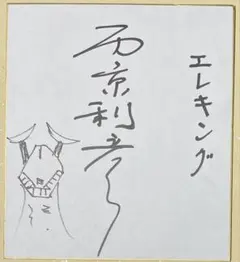 エレキング
西京利彦